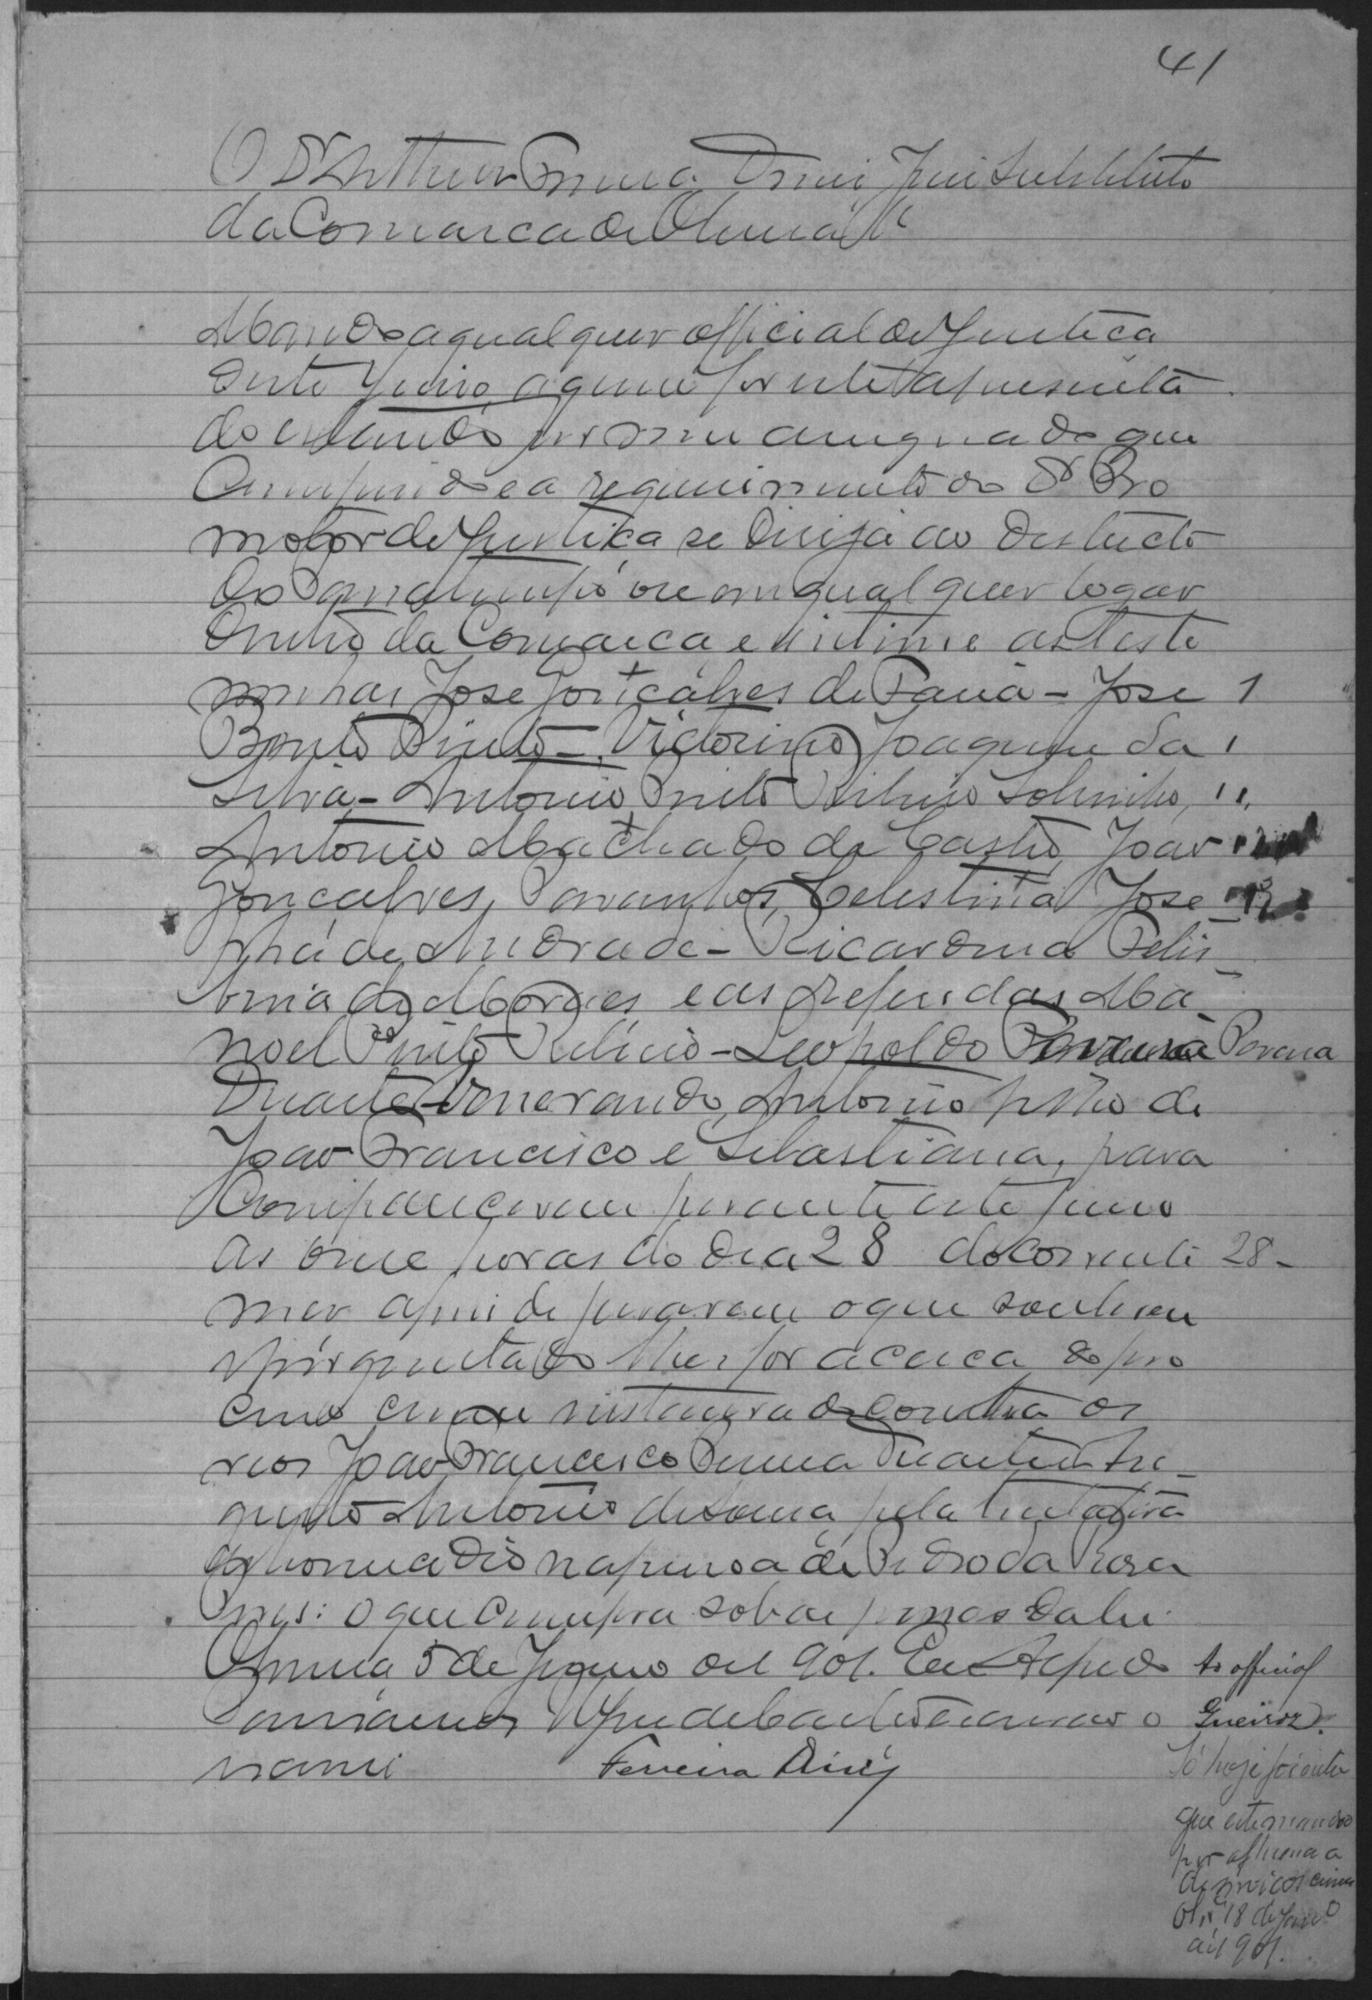 41
O Dr Arthur Ferreira Diniz Juiz Substituto
da Comarca de Oliveira &
Mando a qual quer official de Justiça
deste Juizo, a quem for este apresenta
do estando por mim assignado que
em cumprimento e a requerimento do Dr Pro
motor de Justiça se dirija ao districto
do ou em qual quer logar
dentro da Comarca e intime as teste
munhas Jose Gonçalves de Faria - Jose 1
Bento Pinto - Victorino Joaquim da 1
Silva - Antonio Pinto Ribeiro Sobrinho, 11
Antonio Machado de Castro, Joao
Gonçalves Paranhos, Celestina Jose
pha de Andrade - Ricardina Felis
bina de Moraes e as referidas Ma
noel Pinto Ribeiro - Leopoldo Pereira
Duarte - Venerando, Antonio filho de
Joao Francisco e Sebastiana, para
comparecerem perante este juizo
as onze horas do dia 28 do corrente 28-
mez afim de jurarem o que souberem
e perguntado lhes for acerca do pro
cesso crime instaurado contra os
reos Joao Francisco Pereira Duarte e Au
gusto Antonio de Sousa pela tentativa
de homicidio na pessoa de Pedro da Rosa
Pires: o que cumpra sob as penas da lei.
Oliveira 5 de Janeiro de 1901. Eu Alfredo
escrivão o
Ferreira Diniz
Ao official
Queiroz.
Só hoje
que este mandado
por affluencia
de serviços crimes
Olra 18 de Janro
de 1901.